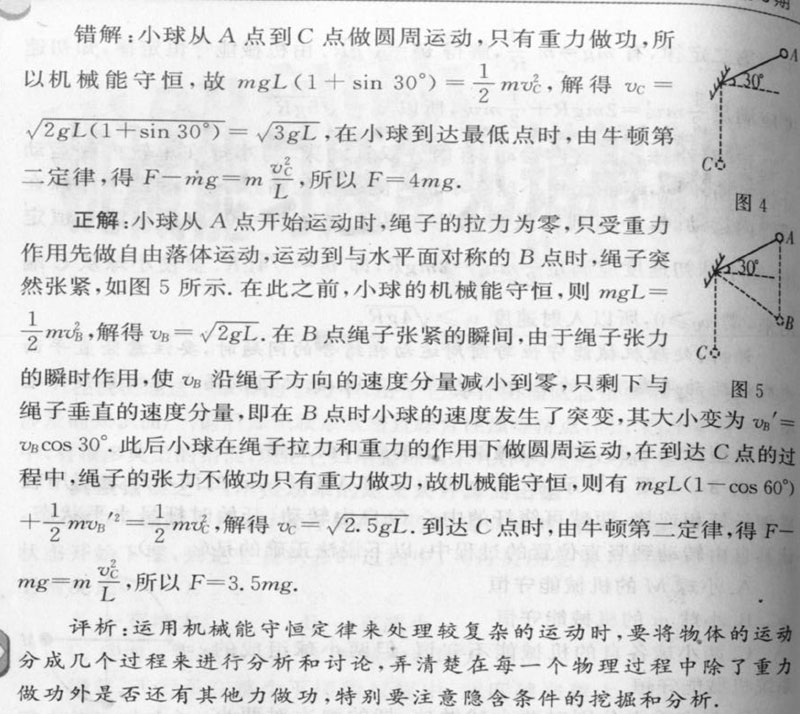 期
错解:小球从 A 点到 C 点做圆周运动,只有重力做功,所
以机械能守恒,故 mgL(1+sin 30°)=\frac{1}{2}mv_C^2,解得 v_C=
\sqrt{2gL(1+sin 30°)}=\sqrt{3gL},在小球到达最低点时,由牛顿第
二定律,得 F-mg=m\frac{v_C^2}{L},所以 F=4mg.
正解:小球从 A 点开始运动时,绳子的拉力为零,只受重力
作用先做自由落体运动,运动到与水平面对称的 B 点时,绳子突
然张紧,如图 5 所示.在此之前,小球的机械能守恒,则 mgL=
\frac{1}{2}mv_B^2,解得 v_B=\sqrt{2gL}.在 B 点绳子张紧的瞬间,由于绳子张力
的瞬时作用,使 v_B 沿绳子方向的速度分量减小到零,只剩下与
绳子垂直的速度分量,即在 B 点时小球的速度发生了突变,其大小变为 v_B′=
v_Bcos 30°.此后小球在绳子拉力和重力的作用下做圆周运动,在到达 C 点的过
程中,绳子的张力不做功只有重力做功,故机械能守恒,则有 mgL(1-cos 60°)
+\frac{1}{2}mv_B′^2=\frac{1}{2}mv_C^2,解得 v_C=\sqrt{2.5gL}.到达 C 点时,由牛顿第二定律,得 F-
mg=m\frac{v_C^2}{L},所以 F=3.5mg.
评析:运用机械能守恒定律来处理较复杂的运动时,要将物体的运动
分成几个过程来进行分析和讨论,弄清楚在每一个物理过程中除了重力
做功外是否还有其他力做功,特别要注意隐含条件的挖掘和分析.
A
30°
C
图 4
A
30°
B
C
图 5